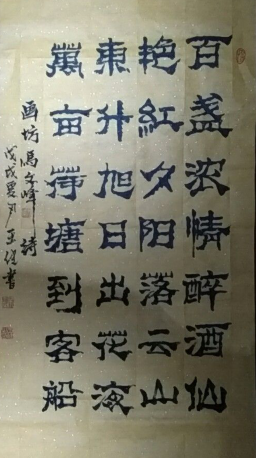 百盏浓情醉酒仙
艳紅夕阳落云山
東升旭日出花海
萬亩荷塘到客船
画坊馮文峰詩
戊戌夏月王書